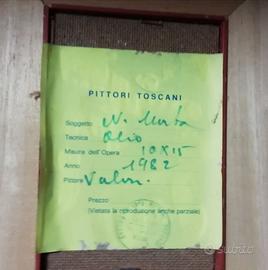 PITTORI TOSCANI
Soggetto N. Morta
Tecnica Olio
Misura dell'Opera 10X15
Anno 1982
Pittore
Prezzo
(Vietata la riproduzione anche parziale)
subito